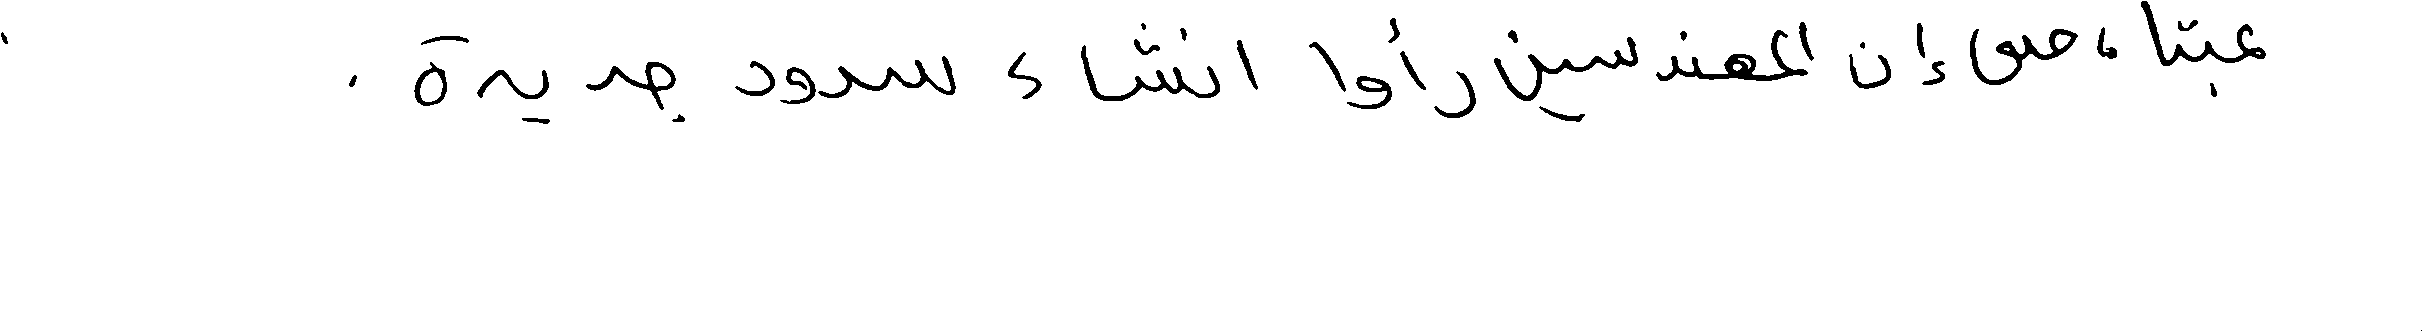 عبثا، حتى إن المهندسين رأوا انشاء سدود جديدة.